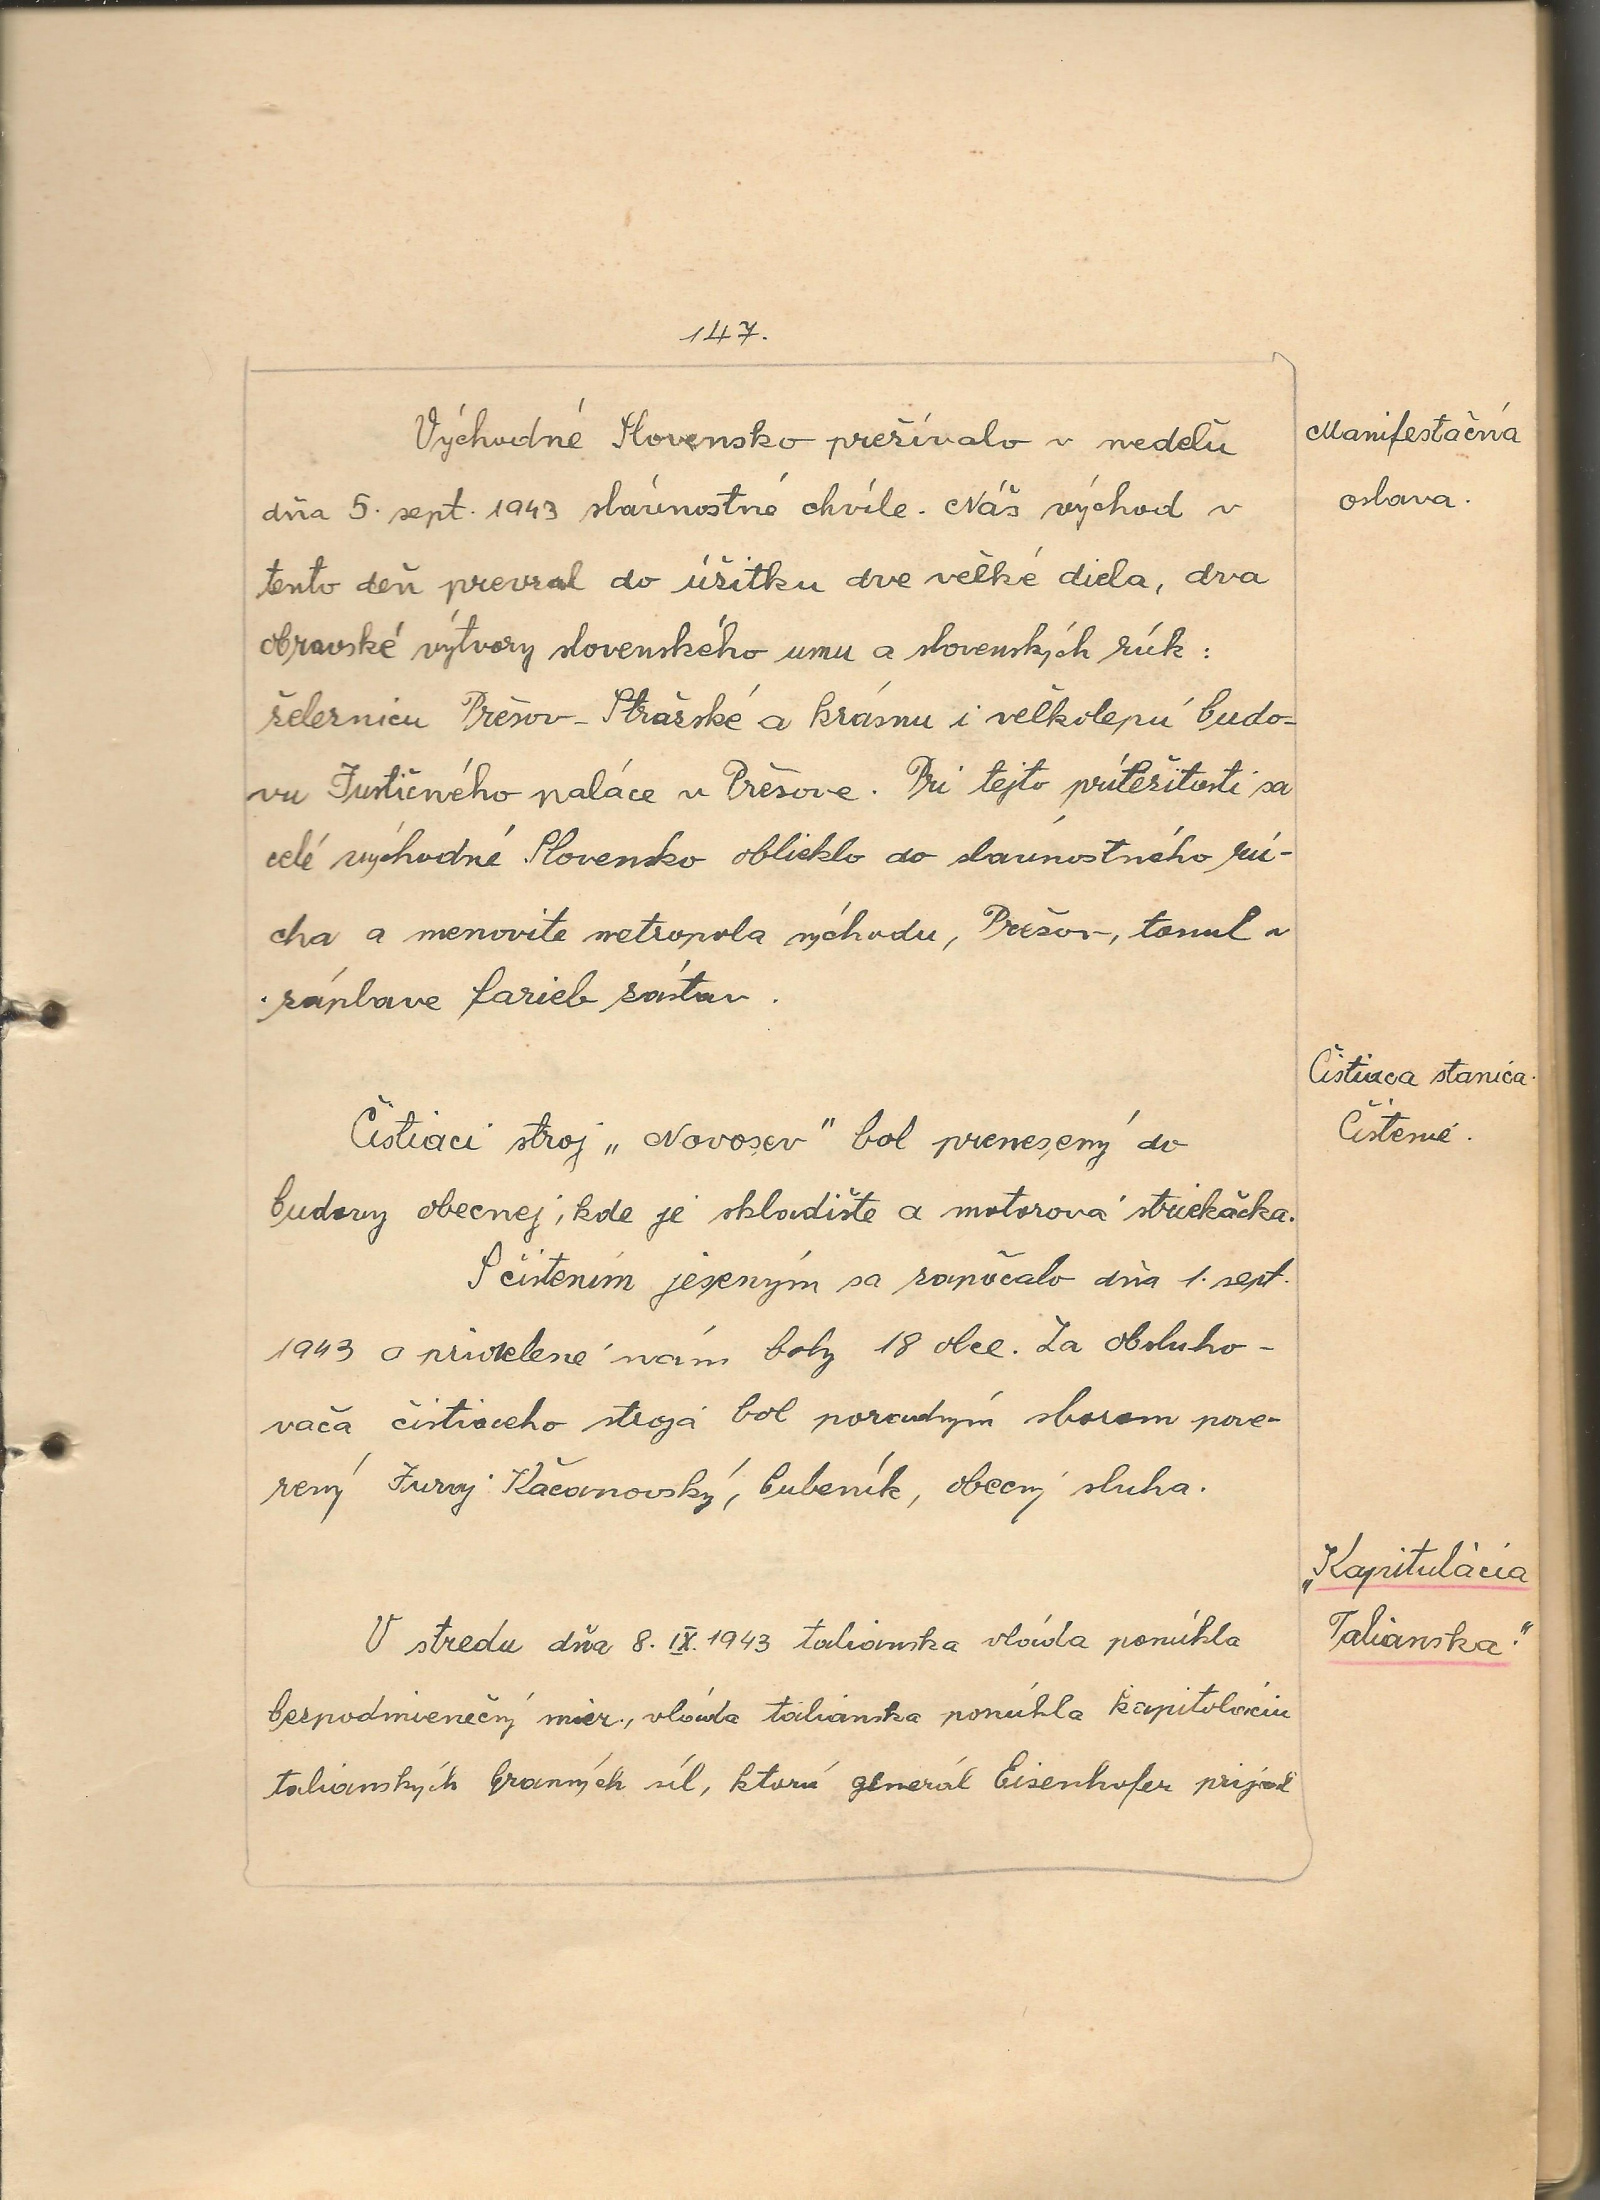 147.
Východné Slovensko prežívalo v nedeľu
Manifestačná
dňa 5. sept. 1943 slávnostné chvíle. Náš východ v
oslava.
tento deň prevzal do úžitku dve veľké diela, dva
obrovské výtvory slovenského umu a slovenských rúk:
železnicu Prešov-Strážské a krásnu i veľkolepú budo-
vu Justičného paláce v Prešove. Pri tejto príležitosti sa
celé východné Slovensko oblieklo do slávnostného rú-
cha a menovite metropola východu, Prešov, tonul v
záplave farieb zástav.
Čistiaca stanica.
Čistiaci stroj „Novosev" bol prenesený do
Čistenie.
budovy obecnej, kde je skladište a motorová striekačka.
S čistením jeseným sa započalo dňa 1. sept.
1943 a pridelené nám boly 18 obce. Za obsluho-
vača čistiaceho stroja bol poradným sborom pove-
rený Juraj Kačanovský, bubeník, obecný sluha.
„Kapitulácia
V stredu dňa 8. IX. 1943 talianska vláda ponúkla
Talianska."
bezpodmienečný mier, vláda talianska ponúkla kapitoláciu
talianských branných síl, ktorú generál Eisenhofer prijal